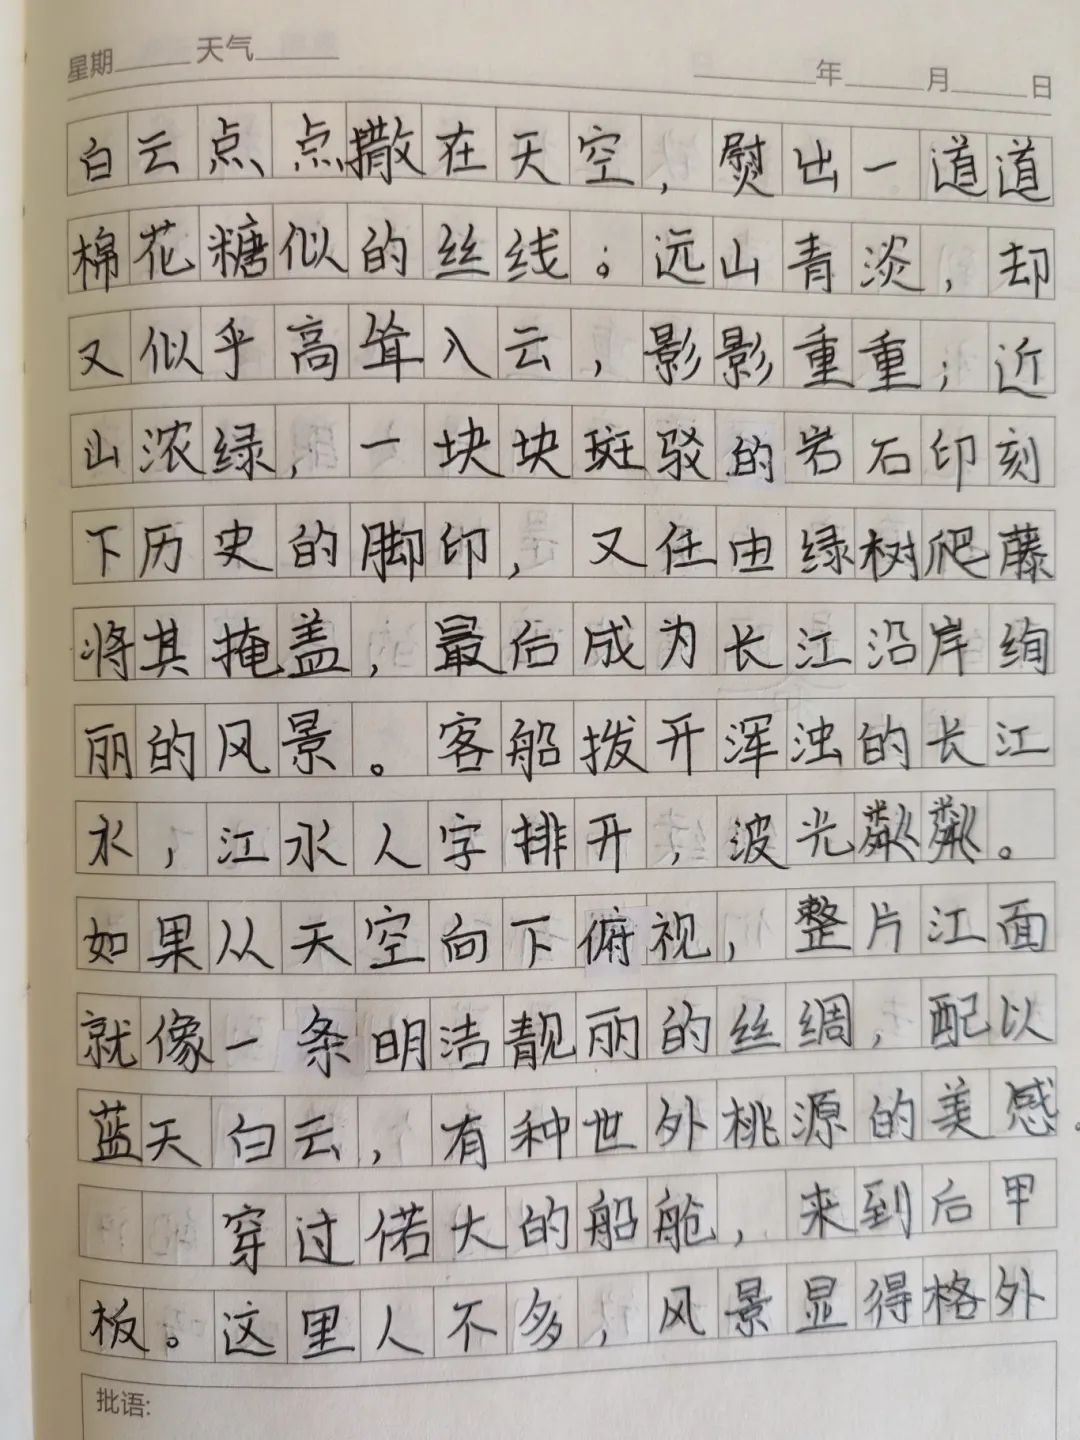 星期 天气 年 月 日
白云点点撒在天空，熨出一道道
棉花糖似的丝线。远山青淡，却
又似乎高耸入云，影影重重；近
山浓绿，一块块斑驳的岩石印刻
下历史的脚印，又任由绿树爬藤
将其掩盖，最后成为长江沿岸绚
丽的风景。客船拨开浑浊的长江
水，江水人字排开，波光粼粼。
如果从天空向下俯视，整片江面
就像一条明洁靓丽的丝绸，配以
蓝天白云，有种世外桃源的美感。
穿过偌大的船舱，来到后甲
板。这里人不多，风景显得格外
批语: